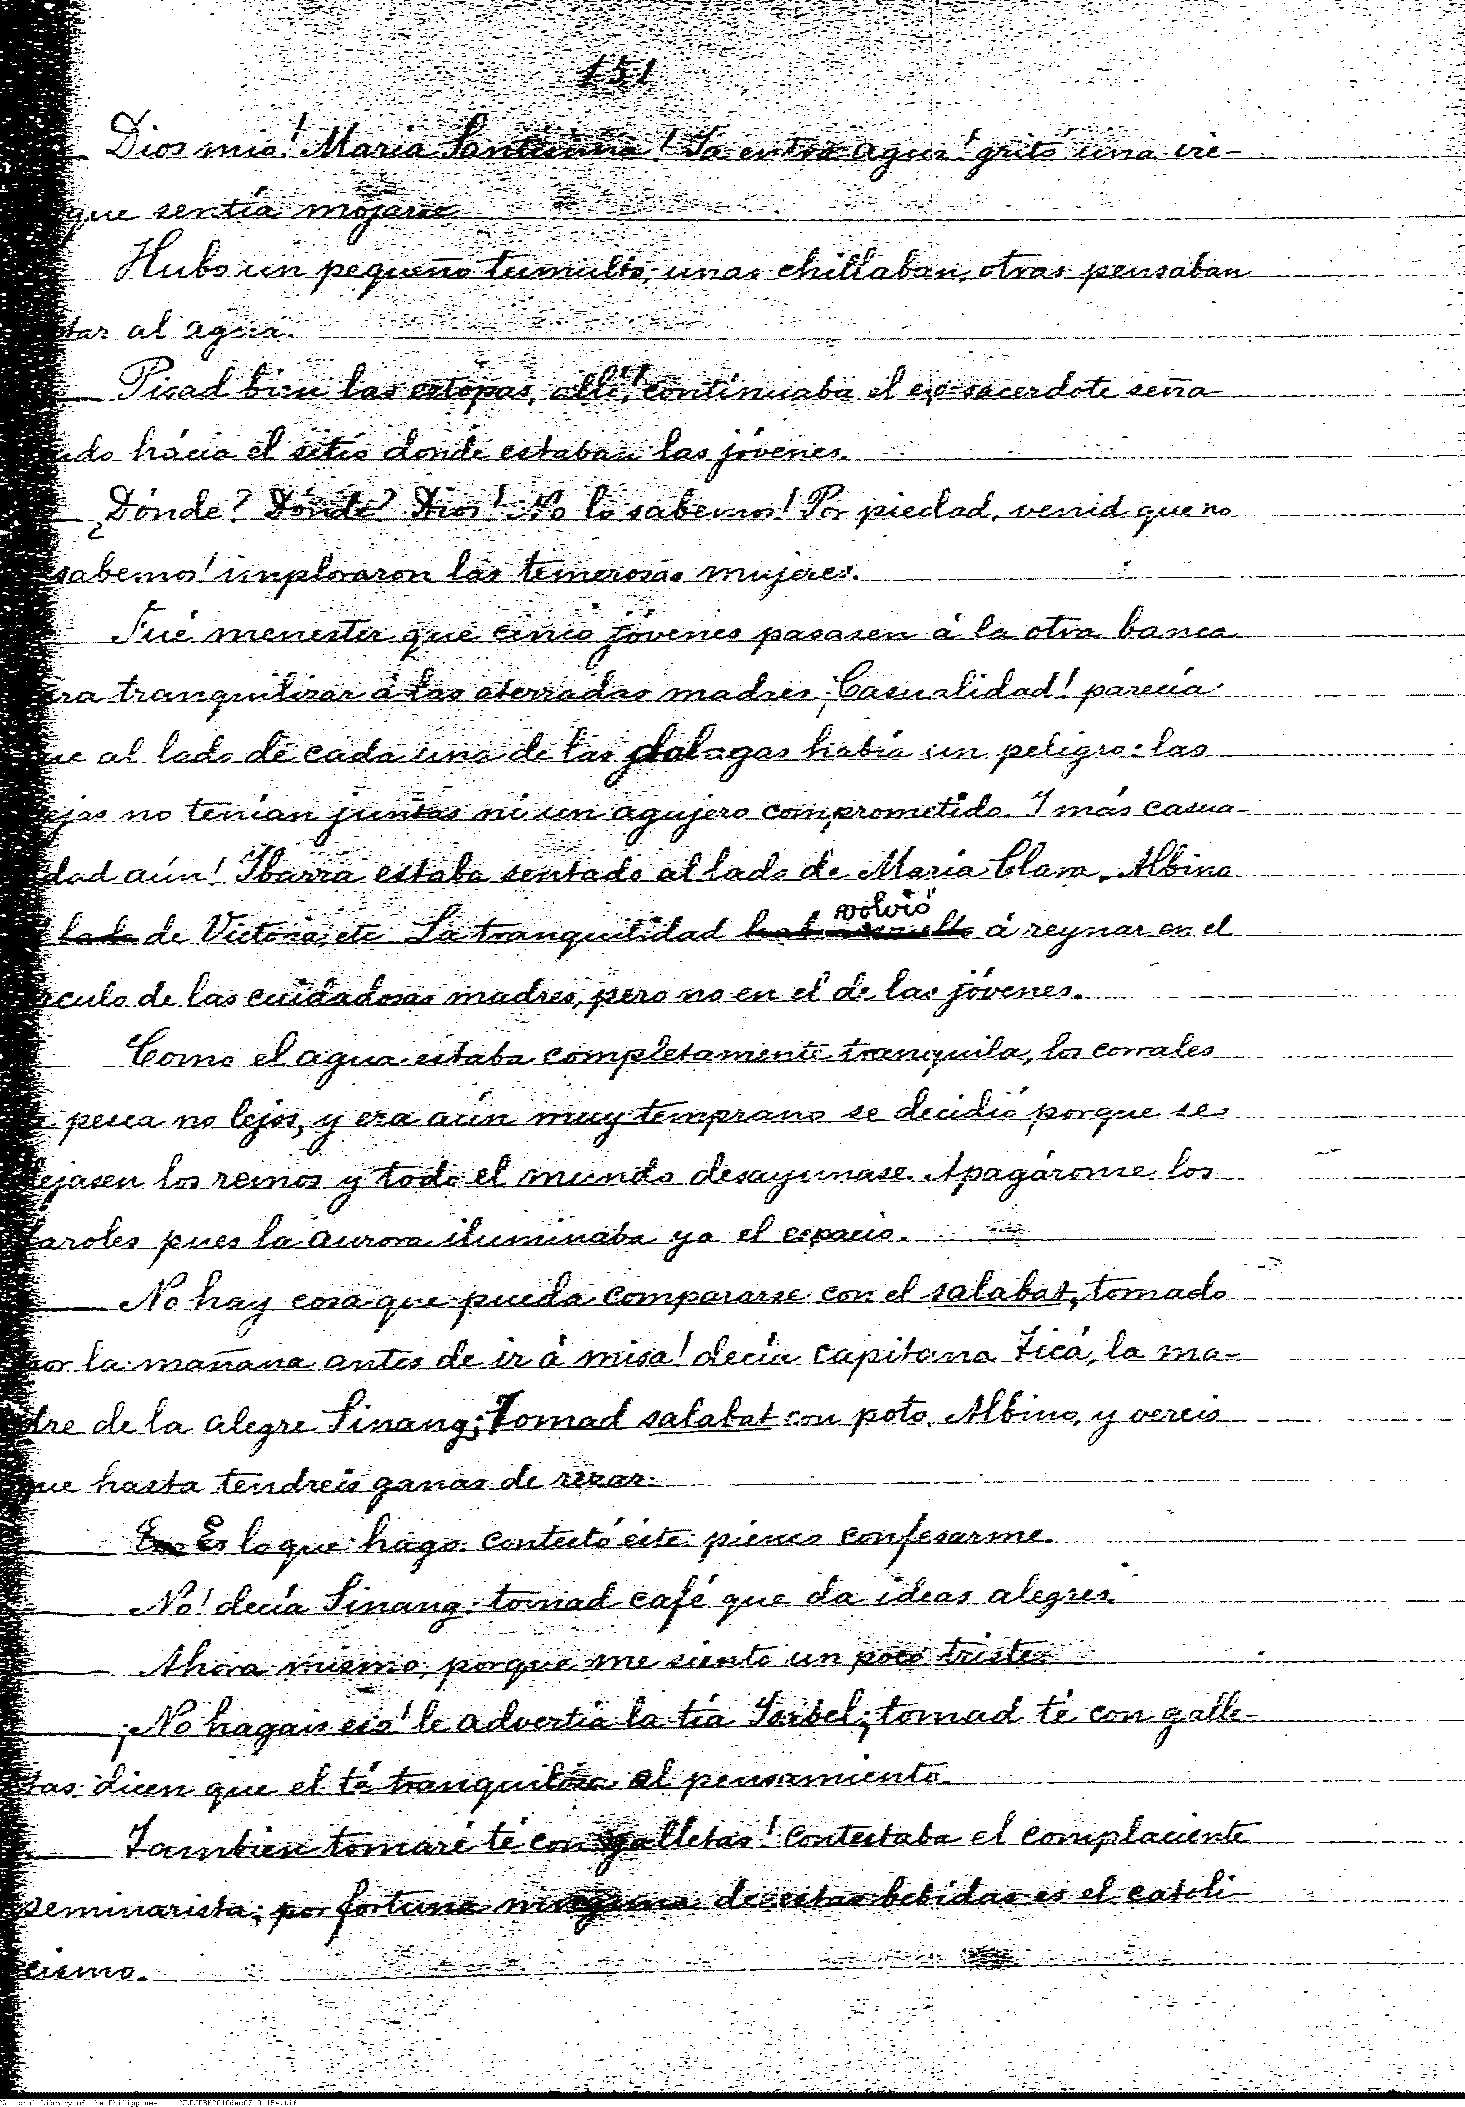 151
— Dios mio! Maria Santisima! Ya entra agua! gritó una vie-
que sentía mojarse
Hubo un pequeño tumulto; unas chillaban, otras pensaban
tar al agua.
— Picad bien las estopas, allí! continuaba el ex-sacerdote seña-
ndo hácia el sitio donde estaban las jóvenes.
— ¿Dónde? Dónde? Dios! No lo sabemos! Por piedad, venid que no
sabemos! imploraron las temerosas mujeres.
Fué menester que cinco jóvenes pasasen á la otra banca
ra tranquilizar á las aterradas madres. ¡Casualidad! parecía
ue al lado de cada una de las dalagas había un peligro: las
ejas no tenían juntas ni un agujero comprometido. Y más casua-
dad aún! Ibarra estaba sentado al lado de María Clara, Albino
lado de Victoria, etc La tranquilidad volvió á reynar en el
rculo de las cuidadosas madres, pero no en el de las jóvenes.
Como el agua estaba completamente tranquila, los corrales
e pesca no lejos, y era aún muy temprano se decidió porque se
dejasen los remos y todo el mundo desayunase. Apagáronse los
faroles pues la aurora iluminaba ya el espacio.
— No hay cosa que pueda compararse con el salabat, tomado
por la mañana antes de ir á misa! decía capitana Ticá, la ma-
dre de la alegre Sinang; Tomad salabat con poto, Albino, y vereis
que hasta tendreis ganas de rezar.
— Es lo que hago. contestó éste: pienso confesarme.
— No! decía Sinang: tomad café que da ideas alegres.
— Ahora mismo, porque me siento un poco triste.
— ¡No hagais eso! le advertía la tía Isabel; tomad té con galle-
tas: dicen que el té tranquiliza el pensamiento.
— Tambien tomaré té con galletas! contestaba el complaciente
seminarista; por fortuna ninguna de estas bebidas es el catoli-
cismo.